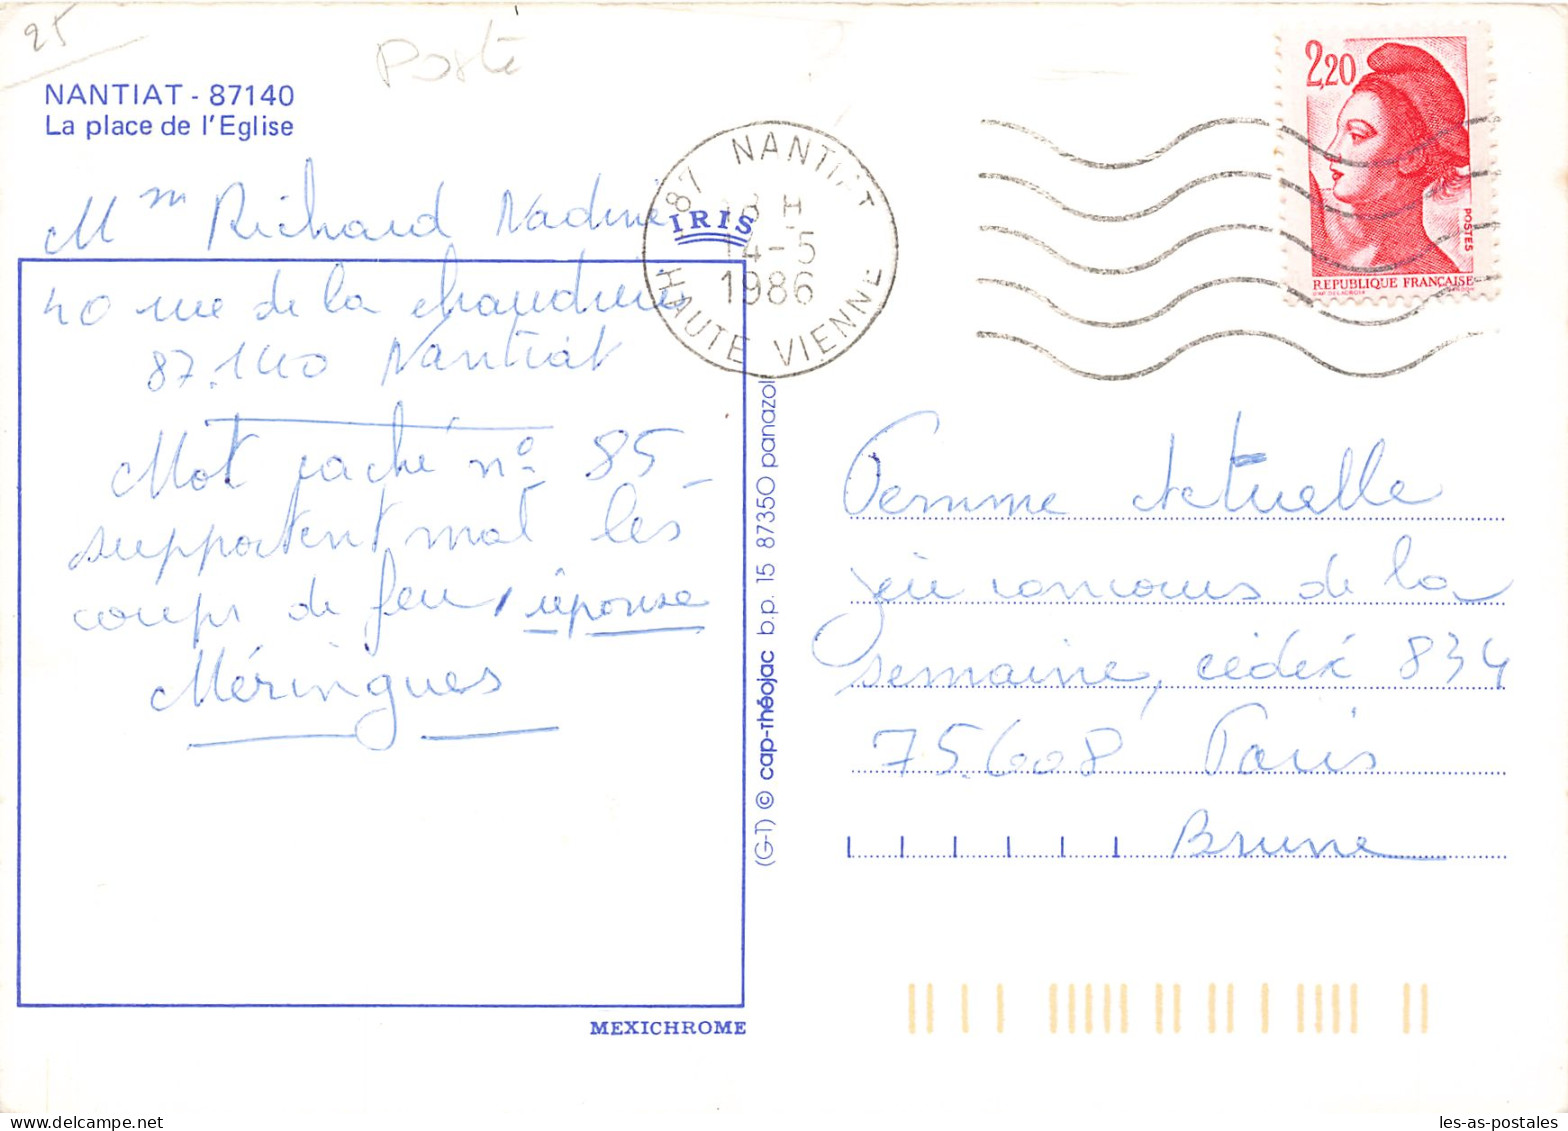 25
Posté
NANTIAT - 87140
La place de l'Eglise
Mm Richard Nadine
40 rue de la chaudure
87.140 Nantiat
Mot caché no 85
supportent mal les
coups de feu, réponse
Méringues
IRIS
87 NANTIAT
18 H
14-5
1986
HAUTE VIENNE
2,20
POSTES
REPUBLIQUE FRANÇAISE
Femme Actuelle
jeu concours de la
semaine, cédex 834
75.608 Paris
Brune
(G-1) © cap-théojac b.p. 15 87350 panazol
MEXICHROME
les-as-postales